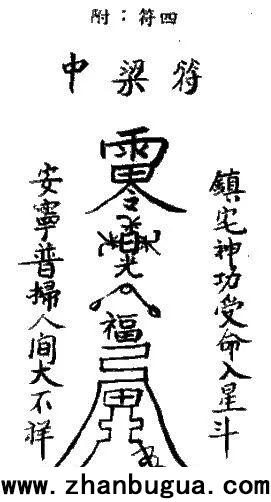 附：符四
中梁符
鎮宅神功受命入星斗
福
安寧普掃人間大不祥
www.zhanbugua.com